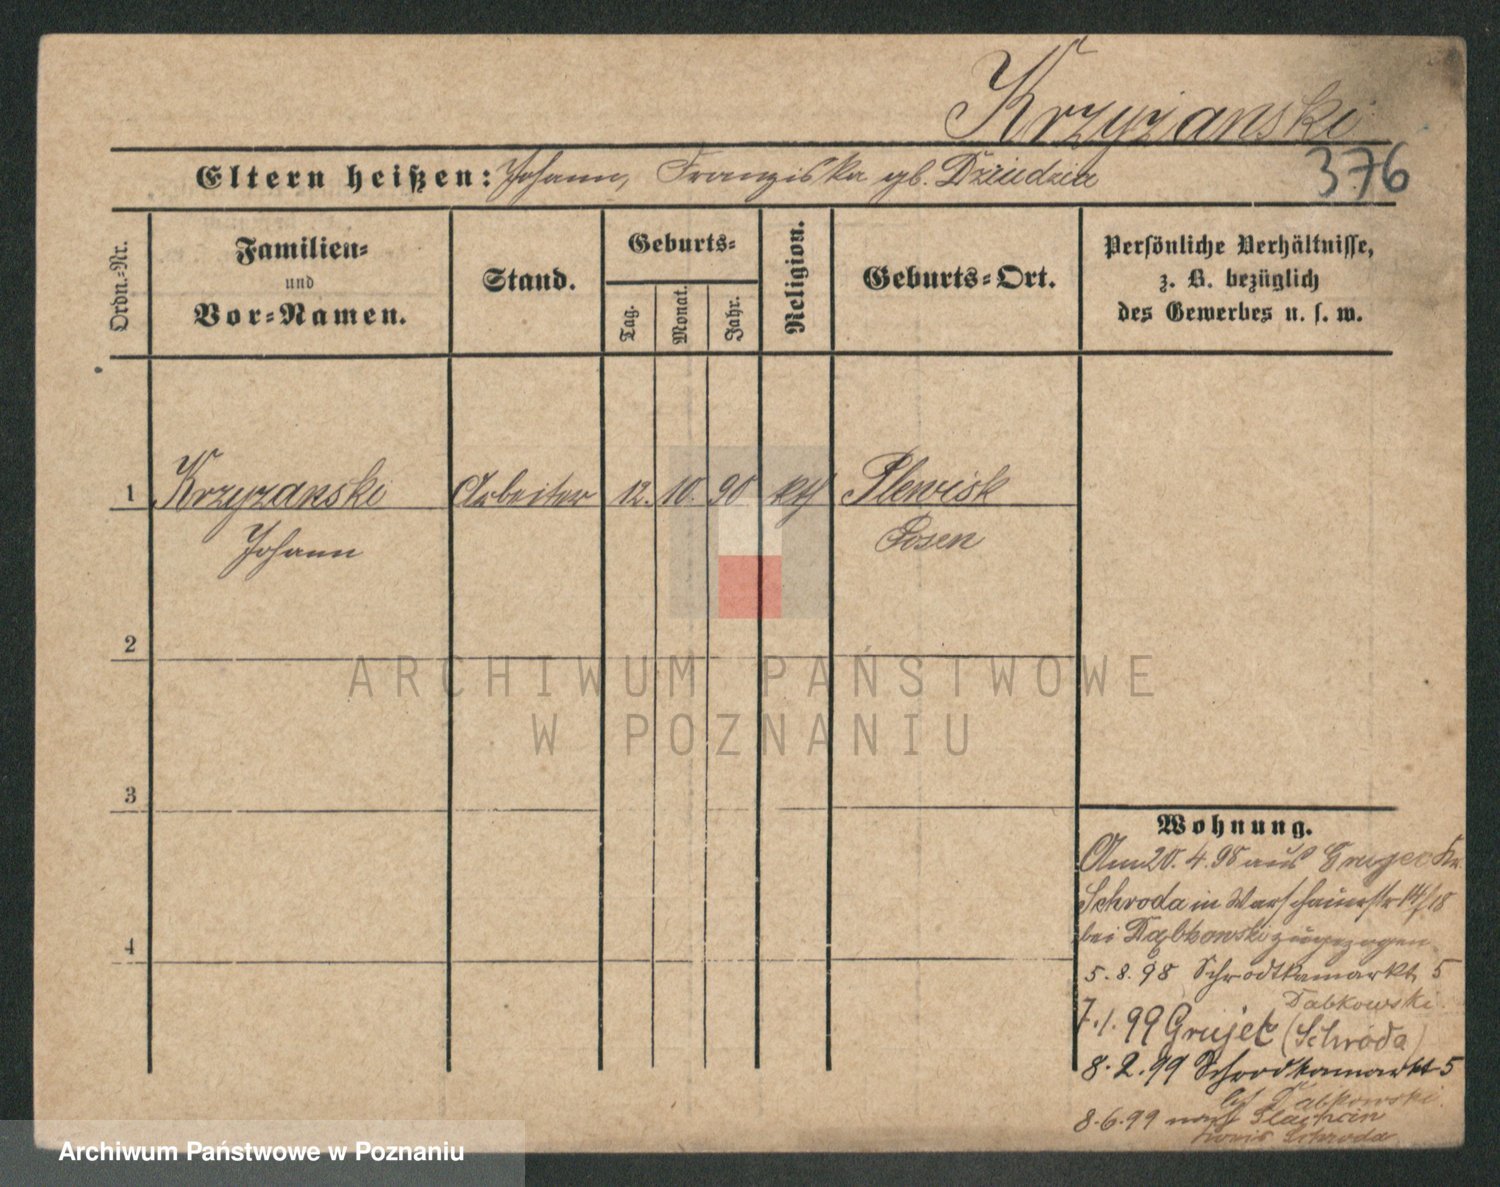 Krzyżanski
Eltern heißen: Johann, Franziska gb. Dziudzia
376
Ordn.-Nr.
Familien-
und
Vor-Namen.
Stand.
Geburts-
Tag.
Monat.
Jahr.
Religion.
Geburts-Ort.
Persönliche Verhältnisse,
z. B. bezüglich
des Gewerbes u. s. w.
1 Krzyzanski Arbeiter 12. 10. 90 kth Plewisk
Johann Posen
2
3
4
ARCHIWUM PAŃSTWOWE
W POZNANIU
Wohnung.
Am 20. 4. 98 aus Grujec Kr.
Schroda in Warschauerstr 14/18
bei Dąbkowski zugezogen
5. 8. 98 Schrodkamarkt 5
Dabkowski.
7. 1. 99 Grujec (Schroda)
8. 2. 99 Schrodkamarkt 5
bei Dabkowski.
8. 6. 99 nach
Kreis Schroda
Archiwum Państwowe w Poznaniu